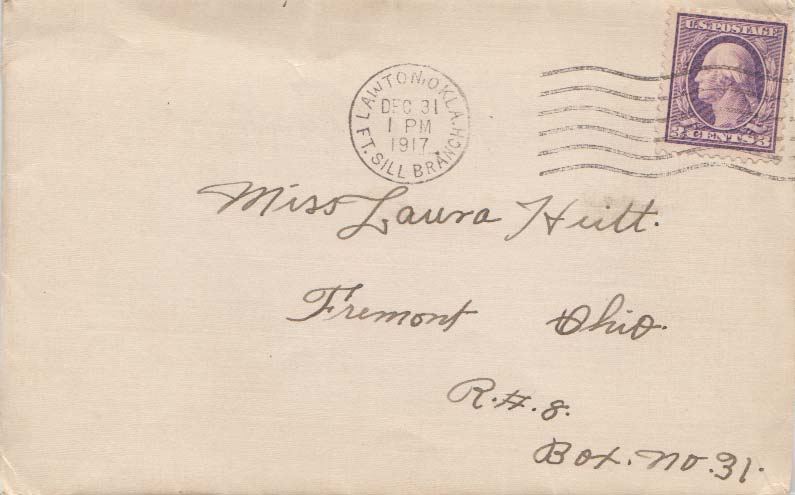 U.S. POSTAGE
3 CENTS 3
LAWTON, OKLA.
DEC 31
1 PM
1917
FT. SILL BRANCH
Miss Laura Hutt.
Fremont Ohio.
R.#.8.
Box. No. 31.